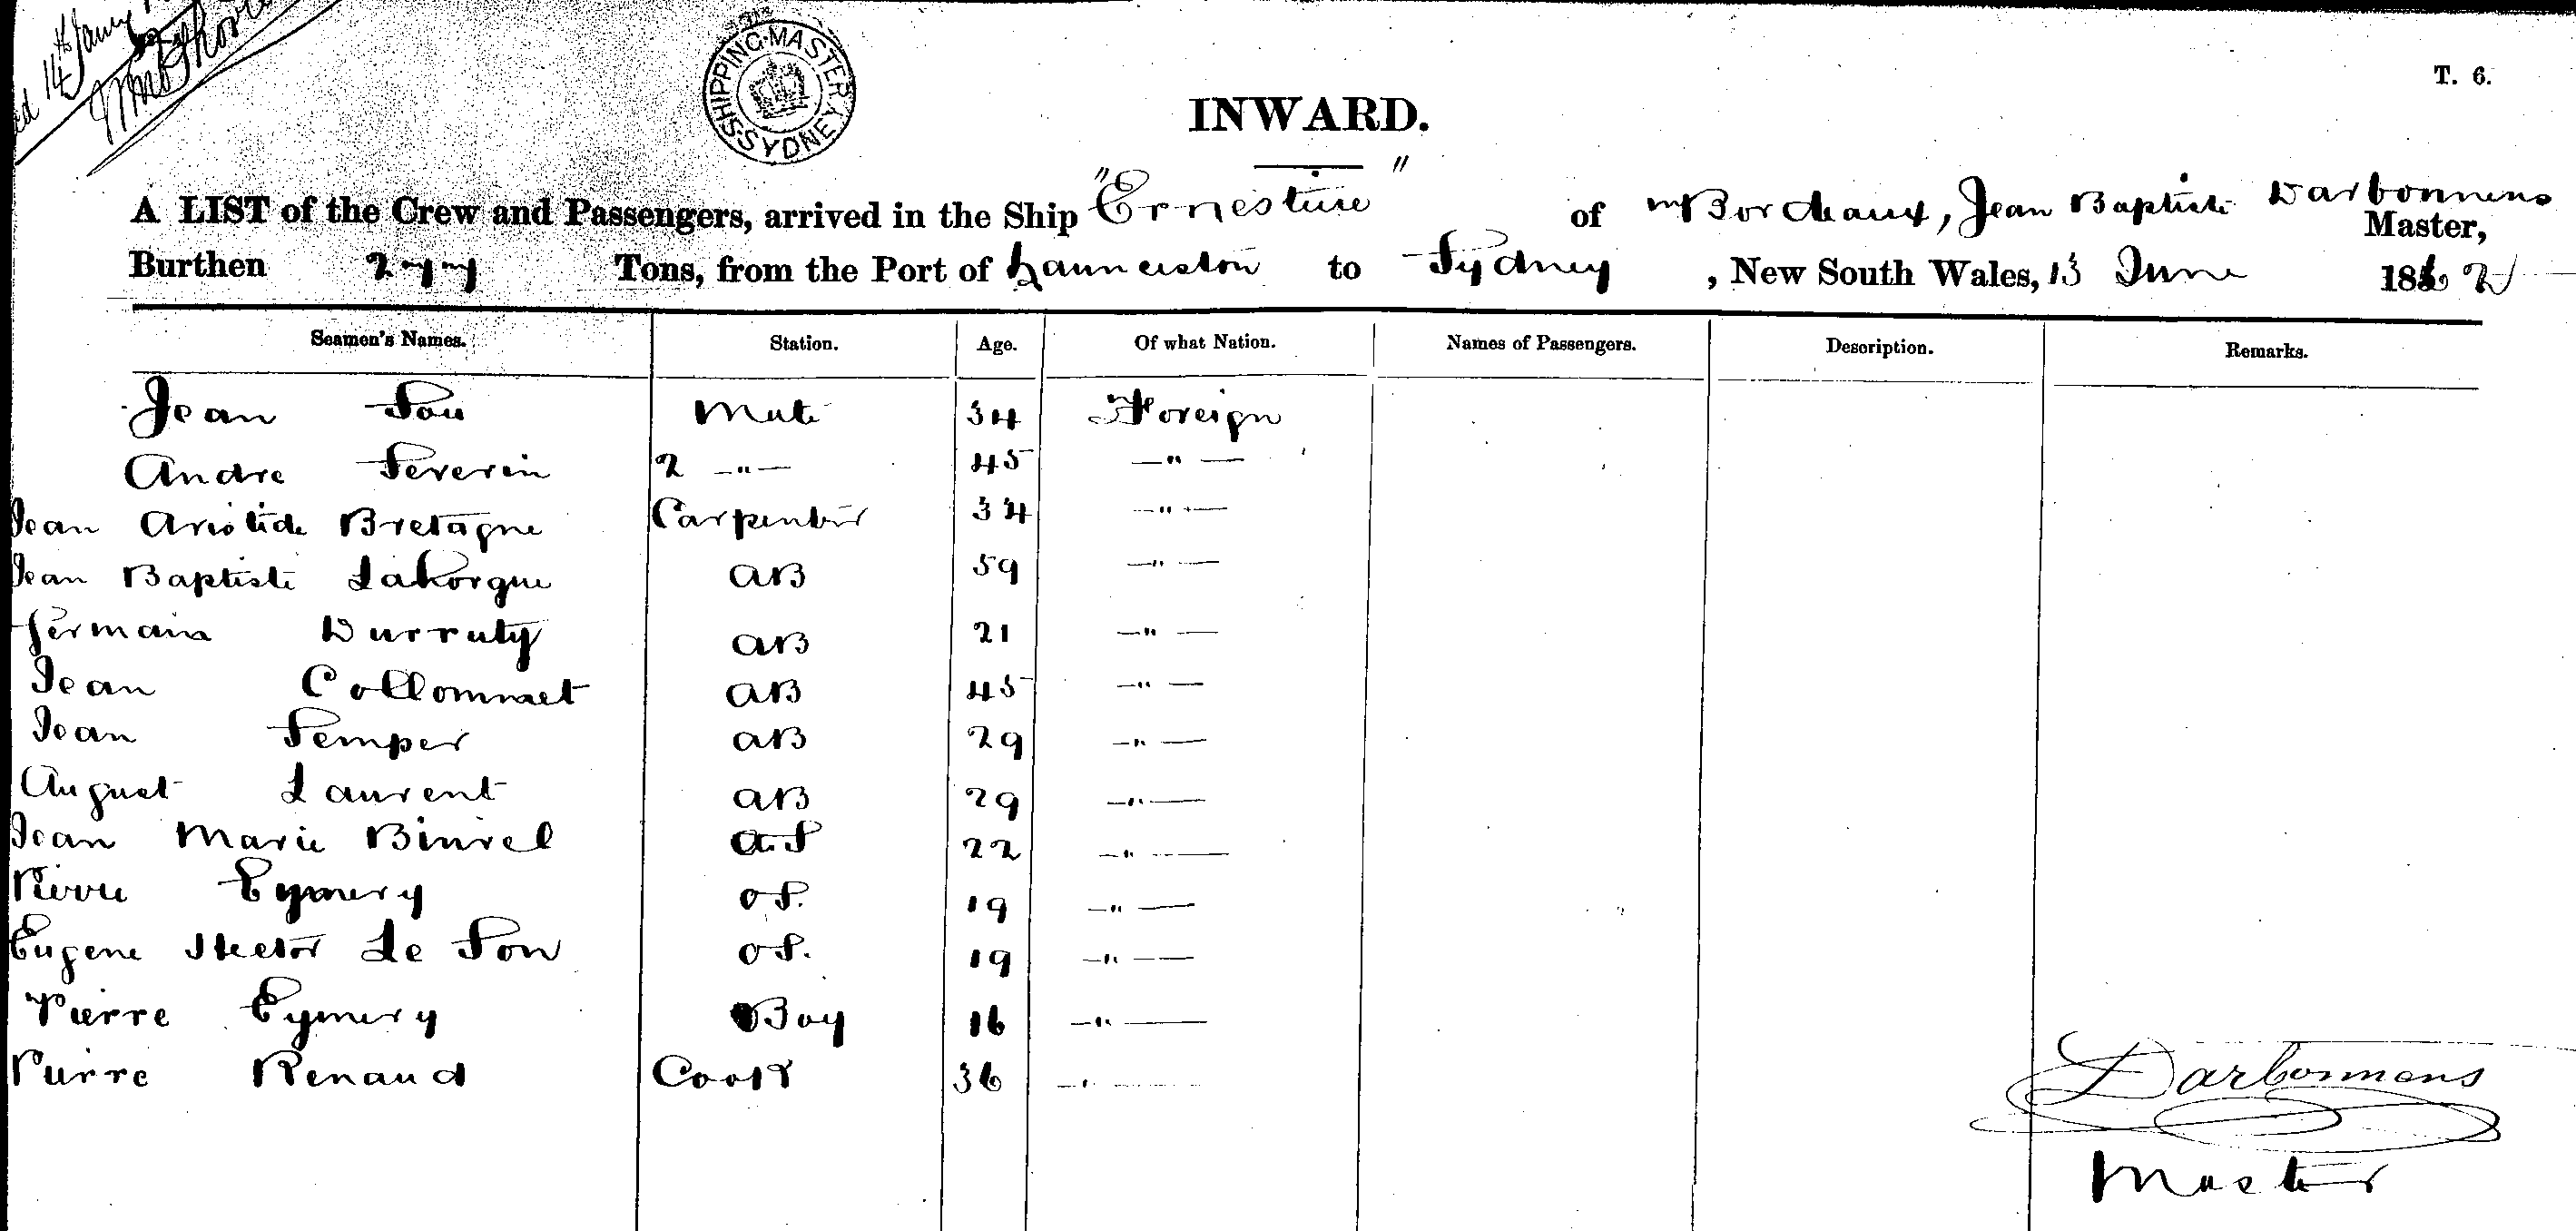 14th Jany
SHIPPING MASTER SYDNEY
T. 6.
INWARD.
A LIST of the Crew and Passengers, arrived in the Ship "Ernestine" of Bordeaux, Jean Baptiste Darbonnens Master,
Burthen 277 Tons, from the Port of Launceston to Sydney, New South Wales, 13 June 1862
Seamen's Names. Station. Age. Of what Nation. Names of Passengers. Description. Remarks.
Jean Sou Mate 34 Foreign
Andre Severin 2 —"— 45 —"—
Jean Aristide Bretagne Carpenter 34 —"—
Jean Baptiste Lahorgue AB 59 —"—
Germain Durruty AB 21 —"—
Jean Collommet AB 45 —"—
Jean Semper AB 29 —"—
August Laurent AB 29 —"—
Jean Marie Binvel AS 22 —"—
Pierre Eymery OS. 19 —"—
Eugene Hector Le Son OS. 19 —"—
Pierre Eymery Boy 16 —"—
Pierre Renaud Cook 36 —"—
Darbonnens
Master